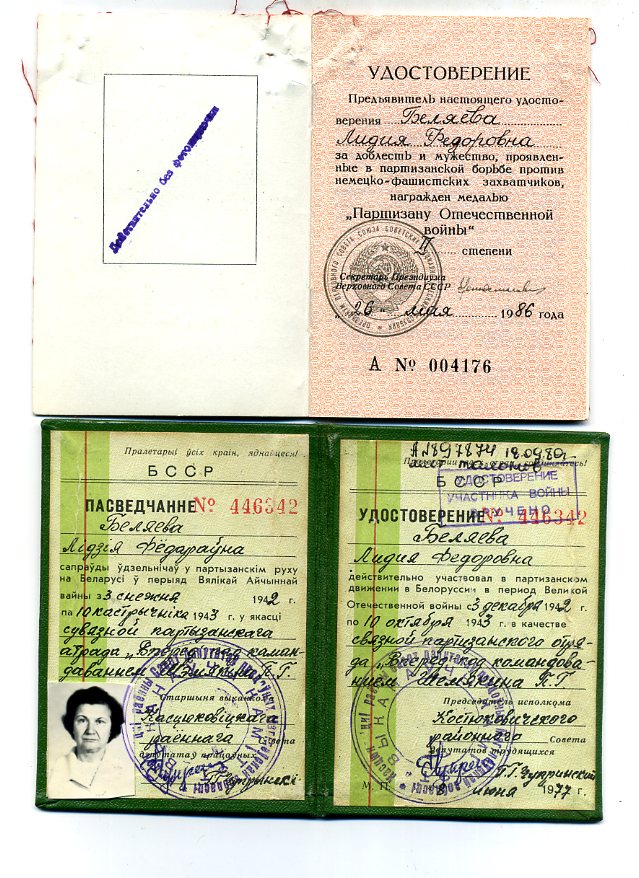 Действительно без фотокарточки
УДОСТОВЕРЕНИЕ
Предъявитель настоящего удосто-
верения Беляева
Лидия Федоровна
за доблесть и мужество, проявлен-
ные в партизанской борьбе против
немецко-фашистских захватчиков,
награжден медалью
„Партизану Отечественной
войны“
II степени
Секретарь Президиума
Верховного Совета СССР
„26“ мая 1986 года
А № 004176
Пралетарыі ўсіх краін, яднайцеся!
БССР
ПАСВЕДЧАННЕ № 446342
Беляева
Лідзія Фёдараўна
сапраўды ўдзельнічаў у партызанскім руху
на Беларусі ў перыяд Вялікай Айчыннай
вайны з 3 снежня 1942 г.
па 10 кастрычніка 1943 г. у якасці
сувязной партызанскага
атрада „Вперед" пад каман-
даваннем П.Г.
Старшыня выканкома
Касцюковіцкага
раённага Совета
дэпутатаў працоўных
А 1897874 18.09.80г.
УДОСТОВЕРЕНИЕ
УЧАСТНИКА ВОЙНЫ
ВРУЧЕНО
БССР
УДОСТОВЕРЕНИЕ № 446342
Беляева
Лидия Федоровна
действительно участвовал в партизанском
движении в Белоруссии в период Великой
Отечественной войны с 3 декабря 1942 г.
по 10 октября 1943 г. в качестве
связной партизанского отря-
да „Вперед" под командова-
нием П.Г
Председатель исполкома
Костюковичского
районного Совета
депутатов трудящихся
М. П.
июня 1977 г.